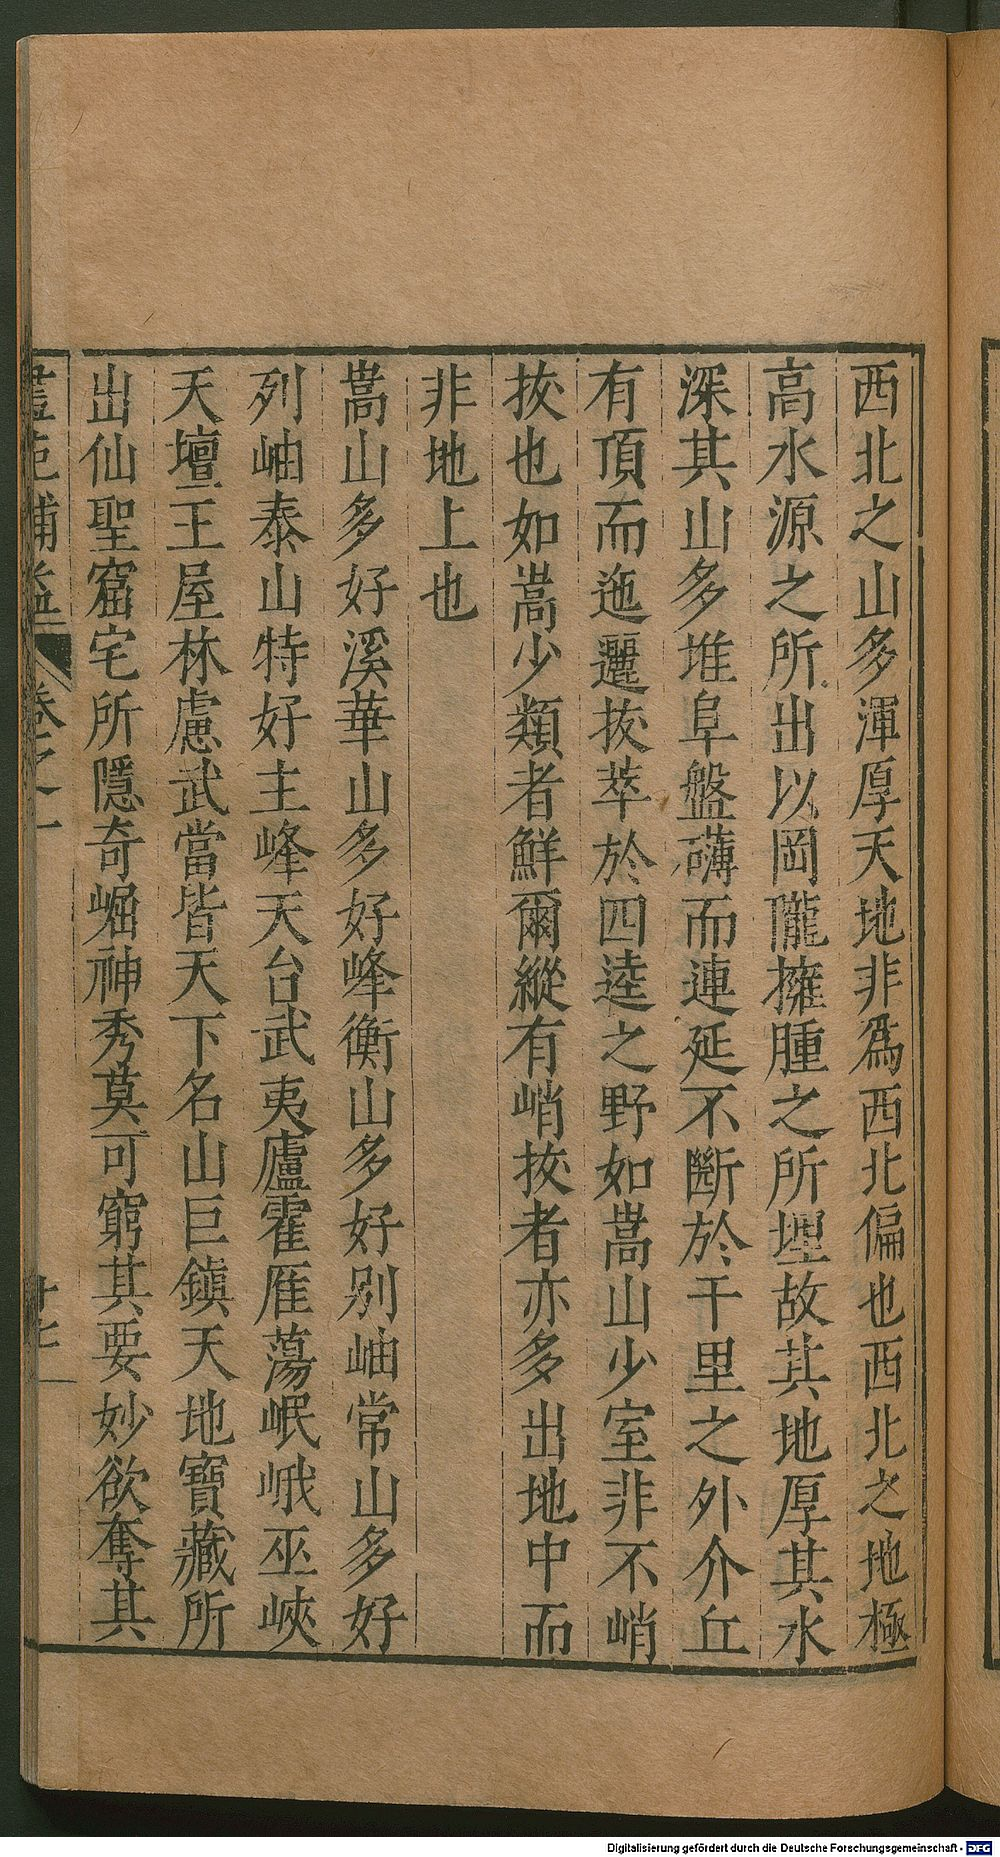 西北之山多渾厚天地非爲西北偏也西北之地極
高水源之所出以岡隴擁腫之所埋故其地厚其水
深其山多堆阜盤礴而連延不斷於千里之外介丘
有頂而迤邐拔萃於四逵之野如嵩山少室非不峭
拔也如嵩少類者鮮爾縱有峭拔者亦多出地中而
非地上也
嵩山多好溪華山多好峰衡山多好别岫常山多好
列岫泰山特好主峰天台武夷廬霍雁蕩岷峨巫峽
天壇王屋林慮武當皆天下名山巨鎮天地寶藏所
出仙聖窟宅所隱奇崛神秀莫可窮其要妙欲奪其
補益 卷之一
Digitalisierung gefördert durch die Deutsche Forschungsgemeinschaft - DFG